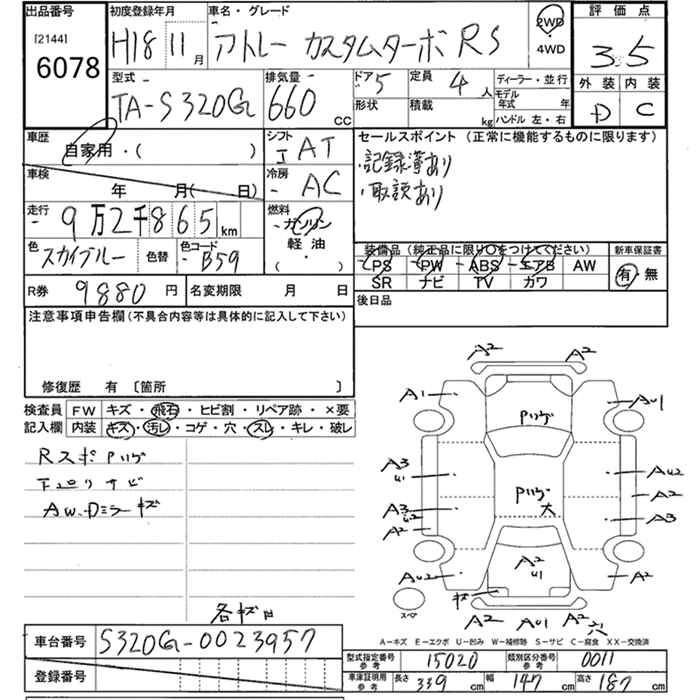 出品番号
[2144]
6078
初度登録年月
H18 11月
車名・グレード
アトレー カスタムターボRS
2WD
・
4WD
評価点
3.5
外装 内装
D C
型式
TA-S320G
排気量
660 CC
ドア 5
定員 4人
形状
積載 kg
ディーラー・並行
モデル年式 年
ハンドル 左・右
車歴
自家用・( )
シフト
I AT
セールスポイント(正常に機能するものに限ります)
・記録簿あり
・取説あり
車検
年 月( 日)
冷房
AC
走行
9万2千865km
燃料
ガソリン
軽油
( )
色
スカイブルー
色替
色コード
B59
装備品(純正品に限り○をつけてください)
PS PW ABS エアB AW
SR ナビ TV カワ
新車保証書
有・無
R券 9880円
名変期限 月 日
後日品
注意事項申告欄(不具合内容等は具体的に記入して下さい)
修復歴 有〔箇所 〕
検査員
記入欄
FW キズ・飛石・ヒビ割・リペア跡・×要
内装 キズ・汚レ・コゲ・穴・スレ・キレ・破レ
Rスポ Pハゲ
下廻りサビ
AW.Dミラーキズ
各キズ凹
A2 A2
A1 AU1
Pハゲ
A3 AU2
Pハゲ大
A2
A3 A3
A2
A2
U1
AU2 A2
キズ
スペア
A2 AU1 A2
A－キズ E－エクボ U－凹み W－補修跡 S－サビ C－腐食 XX－交換済
車台番号 S320G-0023957
登録番号
型式指定番号 参考 15020
類別区分番号 参考 0011
車庫証明用 参考 長さ 339cm 幅 147cm 高さ 187cm